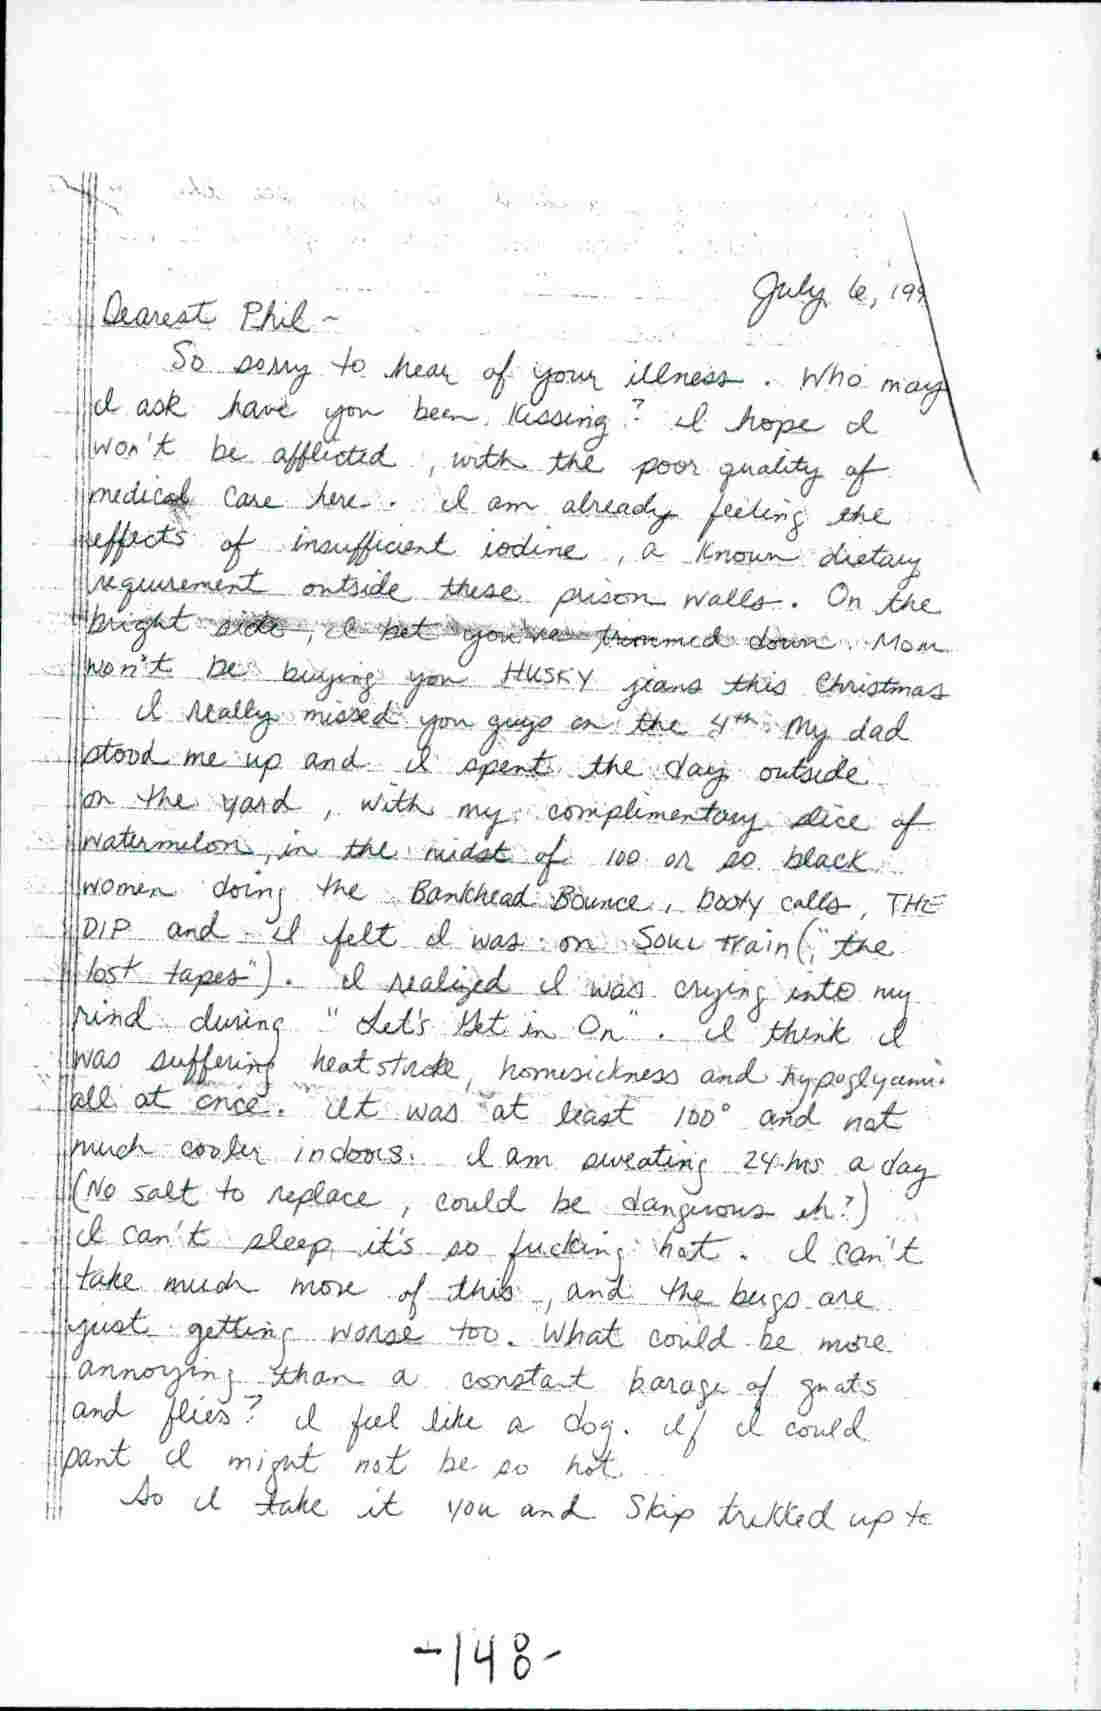 July 6, 199
Dearest Phil ~
So sorry to hear of your illness. Who may
I ask have you been kissing? I hope I
won't be afflicted, with the poor quality of
medical care here. I am already feeling the
effects of insufficient iodine, a known dietary
requirement outside these prison walls. On the
bright side, I bet you've trimmed down. Mom
won't be buying you HUSKY jeans this Christmas
I really missed you guys on the 4th. My dad
stood me up and I spent the day outside
on the yard, with my complimentary slice of
watermelon, in the midst of 100 or so black
women doing the Bankhead Bounce, booty calls, THE
DIP and I felt I was on Soul Train ("the
lost tapes"). I realized I was crying into my
rind during "Let's Get in On". I think I
was suffering heatstroke, homesickness and hypoglyami
all at once. It was at least 100° and not
much cooler indoors. I am sweating 24-hrs a day
(No salt to replace, could be dangerous eh?)
I can't sleep it's so fucking hot. I can't
take much more of this, and the bugs are
just getting worse too. What could be more
annoying than a constant barage of gnats
and flies? I feel like a dog. If I could
pant I might not be so hot.
So I take it you and Skip trekked up to
-148-